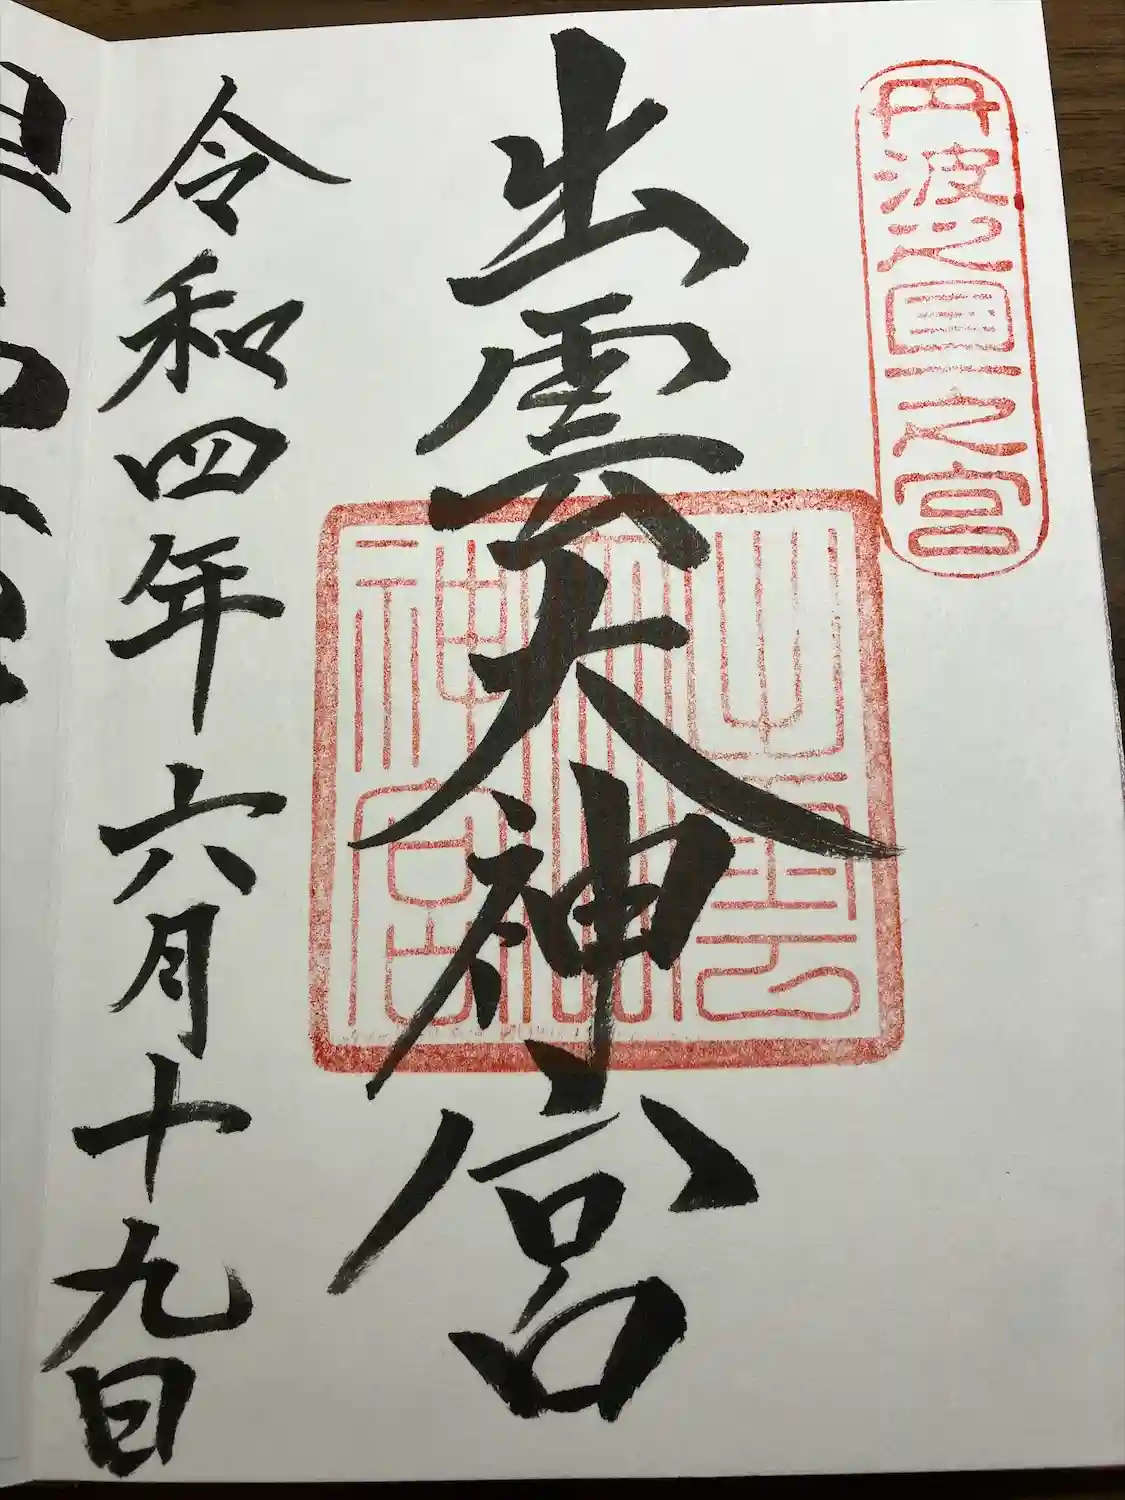 丹波之國一之宮
出雲大神宮
出雲大神宮
令和四年六月十九日